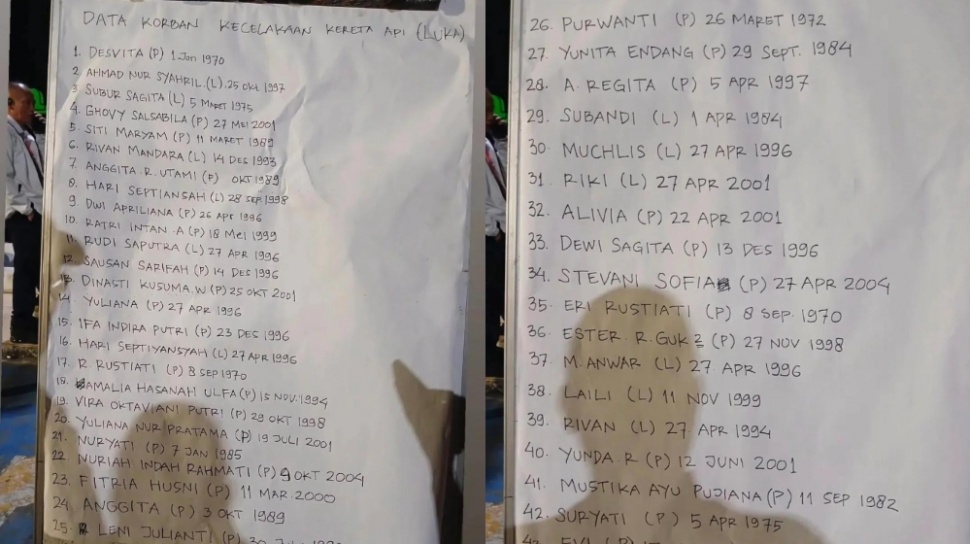 DATA KORBAN KECELAKAAN KERETA API (LUKA)
1. DESVITA (P) 1 Jun 1970
2. AHMAD NUR SYAHRIL (L) 25 Okt 1997
3. SUBUR SAGITA (L) 5 MARET 1975
4. GHOVY SALSABILA (P) 27 MEI 2001
5. SITI MARYAM (P) 11 MARET 1989
6. RIVAN MANDARA (L) 14 DES 1993
7. ANGGITA.R.UTAMI (P) OKT 1989
8. HARI SEPTIANSAH (L) 28 SEP 1998
9. DWI APRILIANA (P) 26 APR 1996
10. RATRI INTAN .A (P) 18 MEI 1999
11. RUDI SAPUTRA (L) 27 APR 1996
12. SAUSAN SARIFAH (P) 14 DES 1996
13. DINASTI KUSUMA.W (P) 25 OKT 2001
14. YULIANA (P) 27 APR 1996
15. IFA INDIRA PUTRI (P) 23 DES 1996
16. HARI SEPTIYANSYAH (L) 27 APR 1996
17. R RUSTIATI (P) 8 SEP 1970
18. AMALIA HASANAH ULFA (P) 15 NOV.1994
19. VIRA OKTAVIANI PUTRI (P) 29 OKT 1998
20. YULIANA NUR PRATAMA (P) 19 JULI 2001
21. NURYATI (P) 7 JAN 1985
22. NURIAH INDAH RAHMATI (P) 9 OKT 2004
23. FITRIA HUSNI (P) 11 MAR.2000
24. ANGGITA (P) 3 OKT 1989
25. LENI JULIANTI (P) 30
26. PURWANTI (P) 26 MARET 1972
27. YUNITA ENDANG (P) 29 SEPT. 1984
28. A. REGITA (P) 5 APR 1997
29. SUBANDI (L) 1 APR 1984
30. MUCHLIS (L) 27 APR 1996
31. RIKI (L) 27 APR 2001
32. ALIVIA (P) 22 APR 2001
33. DEWI SAGITA (P) 13 DES 1996
34. STEVANI SOFIA (P) 27 APR 2004
35. ERI RUSTIATI (P) 8 SEP. 1970
36. ESTER.R.GUK2 (P) 27 NOV 1998
37. M.ANWAR (L) 27 APR 1996
38. LAILI (L) 11 NOV 1999
39. RIVAN (L) 27 APR 1994
40. YUNDA.R (P) 12 JUNI 2001
41. MUSTIKA AYU PUJIANA (P) 11 SEP 1982
42. SURYATI (P) 5 APR 1975